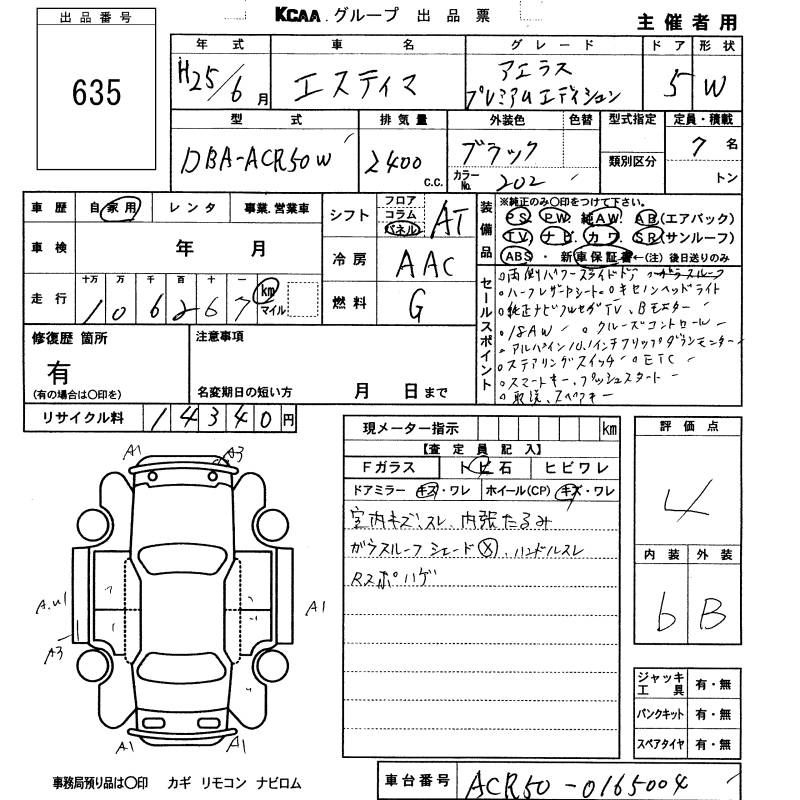 KCAA グループ 出品票
主催者用
出品番号
635
年式 車名 グレード ドア 形状
H25/6月 エスティマ アエラス プレミアムエディション 5 W
型式 排気量 外装色 色替 型式指定 定員・積載
DBA-ACR50W 2400 c.c. ブラック 7名
カラーNo. 202 類別区分 トン
車歴 自家用 レンタ 事業.営業車
車検 年 月
走行 十万 万 千 百 十 一
1 0 6 2 6 7 km マイル
シフト フロア コラム パネル AT
冷房 AAC
燃料 G
装備品
※純正のみ○印をつけて下さい。
PS. PW. 純AW. AB.(エアバック)
TV. ナビ. カワ. SR(サンルーフ)
ABS ・ 新車保証書←(注)後日送りのみ
セールスポイント
○両側パワースライドドア ○ガラスルーフ
○ハーフレザーシート ○キセノンヘッドライト
○純正ナビフルセグTV、Bモニター
○18AW ○クルーズコントロール
○アルパイン10.1インチフリップダウンモニター
○ステアリングスイッチ ○ETC
○スマートキー、プッシュスタート
○取説、スペアキー
修復歴 箇所
有
(有の場合は○印を)
注意事項
名変期日の短い方 月 日まで
リサイクル料 14340円
現メーター指示 km
【査定員記入】
Fガラス トビ石 ヒビワレ
ドアミラー キズ・ワレ ホイール(CP) キズ・ワレ
室内キズ、スレ、内張たるみ
ガラスルーフ シェード Ⓧ、ハンドルスレ
Rスポハゲ
評価点
4
内装 外装
b B
ジャッキ工具 有・無
パンクキット 有・無
スペアタイヤ 有・無
A1 A3
A.U1 A1
A3
A1 A1
事務局預り品は○印 カギ リモコン ナビロム
車台番号 ACR50-0165004